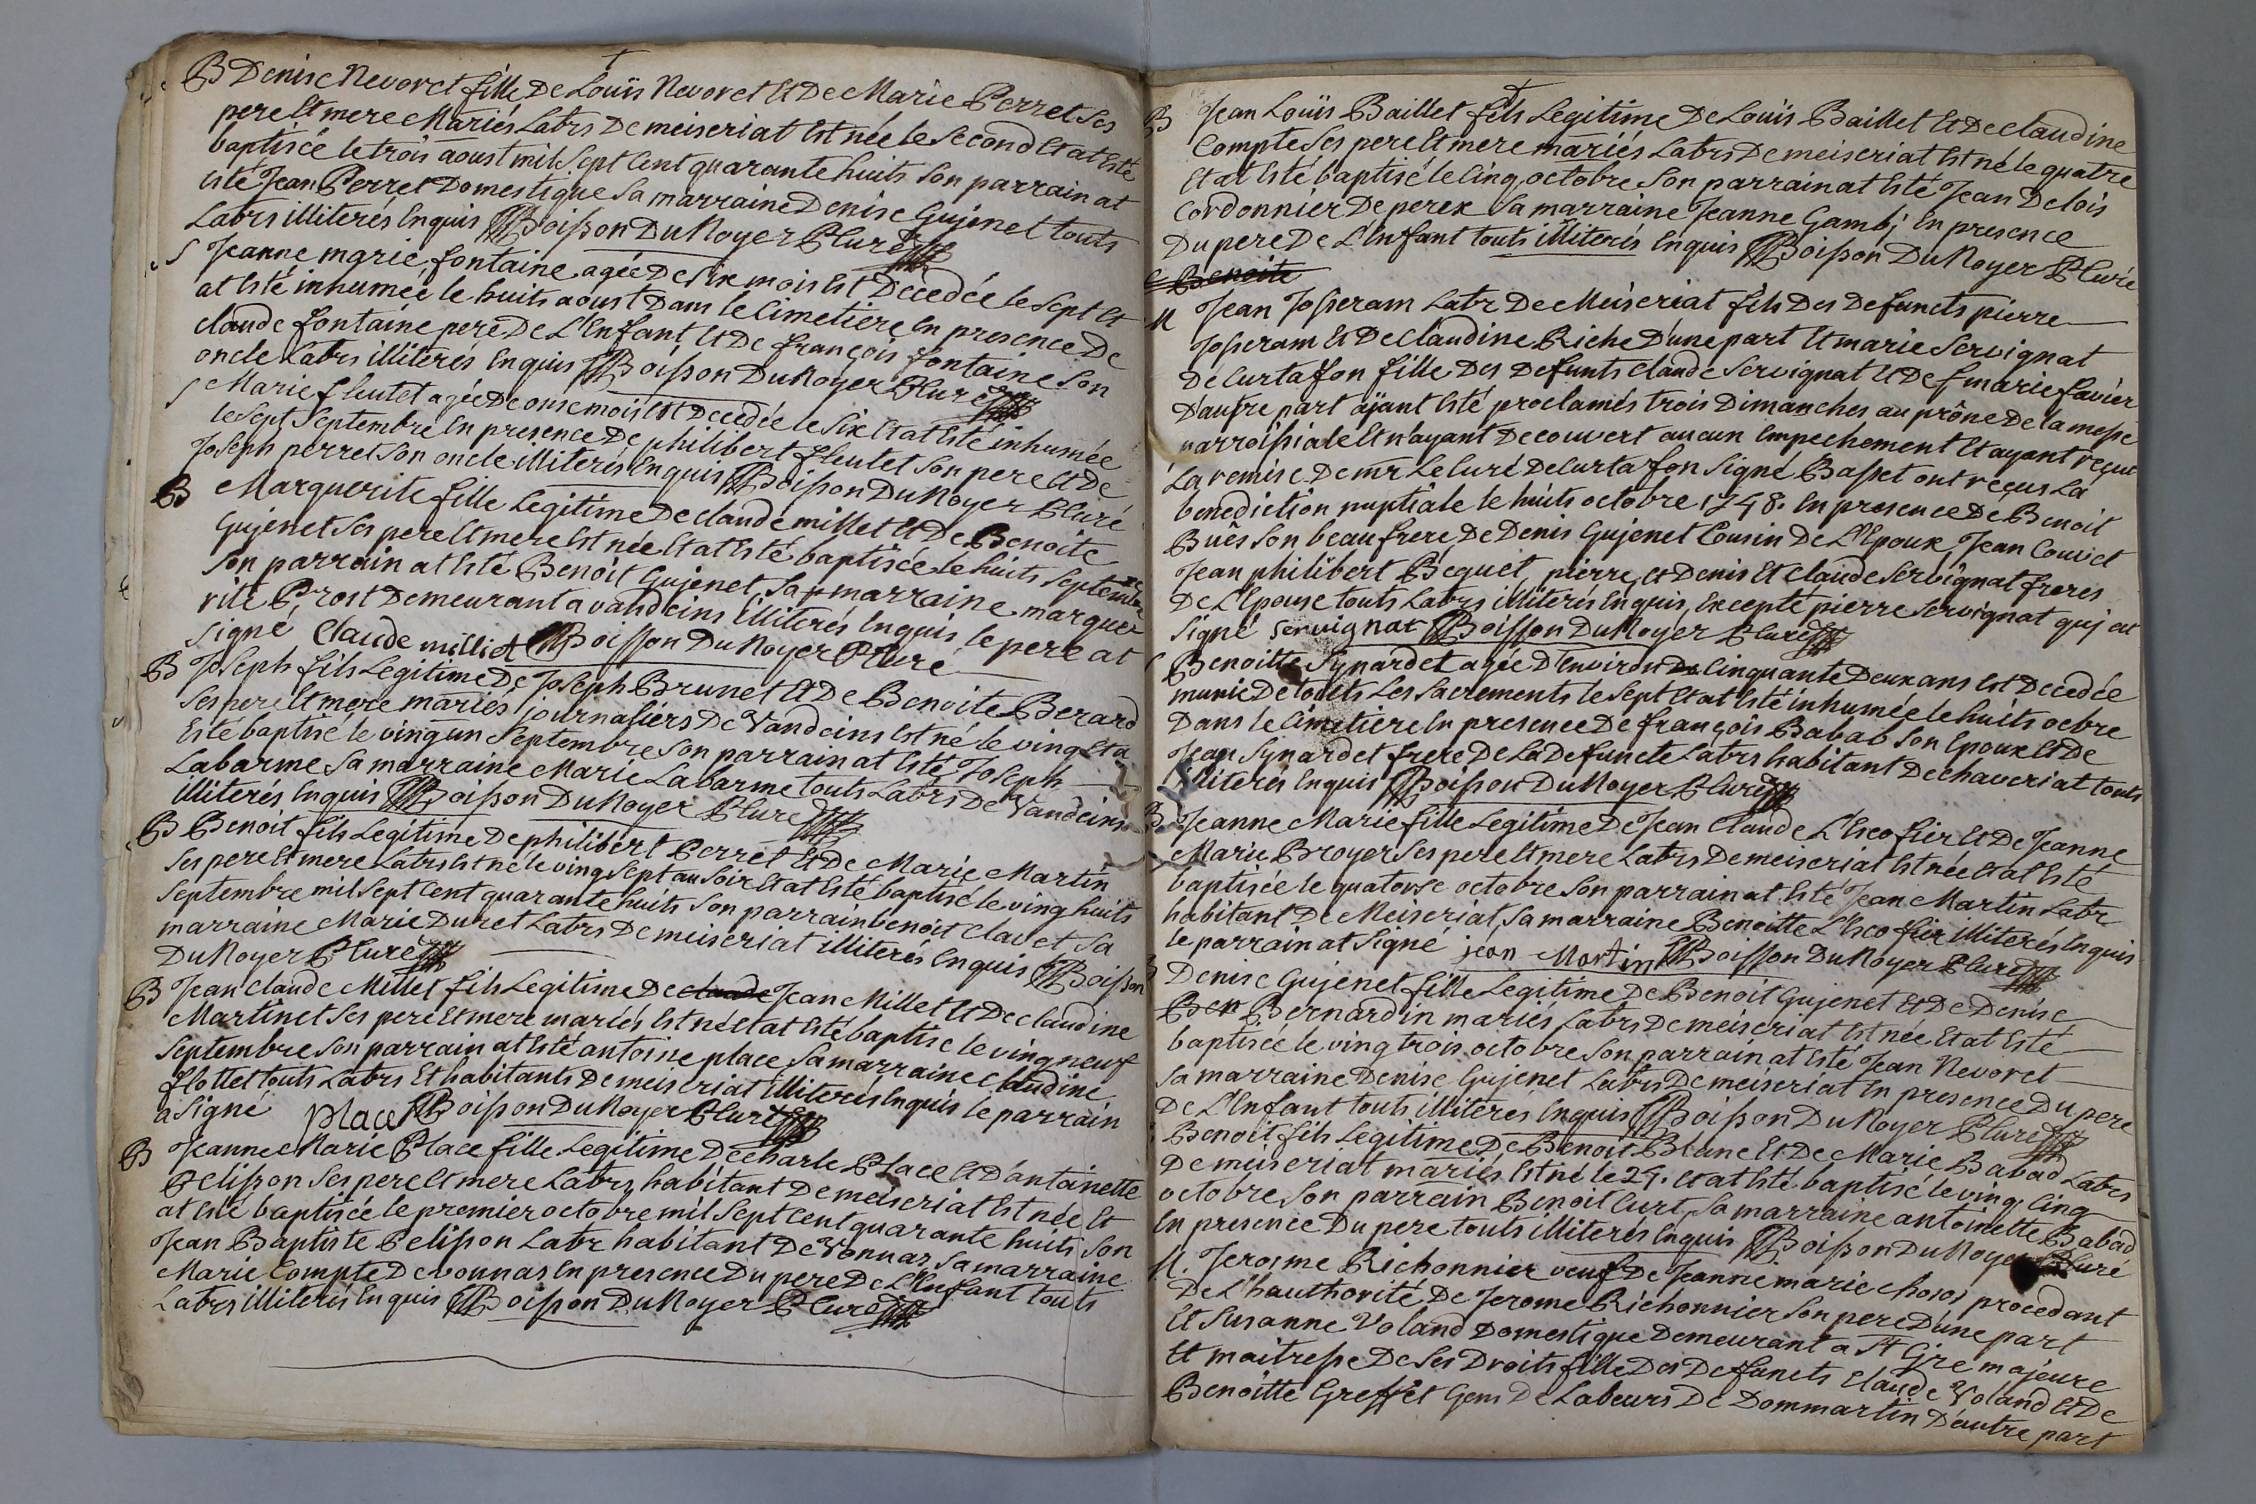 B Denise Nevoret fille De Louïs Nevoret Et De Marie Perret Ses
pere Et mere Mariés Labrs De meiseriat Est née le second Et at Esté
baptisée le trois aoust mil Sept Cent quarante huits Son parrain at
Esté Jean Perret Domestique Sa marraine Denise Gujenet touts
Labrs illiterés Enquis Boisson Du Noyer P Curé
S Jeanne marie fontaine agée De six mois Est Decedée le Sept Et
at Esté inhumée le huits aoust Dans le Cimetiere En presence De
claude fontaine pere De L'Enfant Et De françois fontaine Son
oncle Labrs illiterés Enquis Boisson Du Noyer P Curé
S Marie fleutet agée De onse mois Est Decedée le Six Et at Esté inhumée
le Sept Septembre En presence De philibert fleutet Son pere Et De
Joseph perret Son oncle illiterés Enquis Boisson Du Noyer P Curé
B Marguerite fille Legitime De claude millet Et De Benoite
Gujenet Ses pere Et mere Est née Et at Esté baptisée le huits Septembre
Son parrain at Esté Benoit Gujenet, Sa marraine margue-
rite Prost Demeurant a vandeins illiterés Enquis le pere at
Signé Claude milliet Boisson Du Noyer P Curé
B Joseph fils Legitime De Joseph Brunet Et De Benoite Berard
Ses pere Et mere mariés journaliers De Vandeins Est né le vingt Et a
Esté baptisé le vingun Septembre Son parrain at Esté Joseph
Labarme Sa marraine Marie Labarme touts Labrs De Vandeins
illiterés Enquis Boisson Du Noyer P Curé
B Benoit fils Legitime De philibert Perret Et De Marie Martin
Ses pere Et mere Labrs Est né le ving Sept au Soir Et at Esté baptisé le ving huits
Septembre mil Sept Cent quarante huits Son parrain benoit clavet Sa
marraine Marie Duret Labrs De meiseriat illiterés Enquis Boisson
Du Noyer P Curé
B Jean claude Millet fils Legitime De claude Jean Millet Et De claudine
Martinet Ses pere Et mere mariés Est né Et at Esté baptisé le ving neuf
Septembre Son parrain at Esté antoine place Sa marraine claudine
flottet touts Labrs Et habitants De meiseriat illiterés Enquis le parrain
a Signé place Boisson Du Noyer P Curé
B Jeanne Marie Place fille Legitime De charle Place Et D'antoinette
Pelisson Ses pere Et mere Labrs habitant De meiseriat Est née Et
at Esté baptisée le premier octobre mil Sept Cent quarante huits Son
Jean Baptiste Pelisson Labr habitant De Vonnas, Sa marraine
Marie Compte De vonnas En presence Du pere De L'Enfant touts
Labrs illiterés Enquis Boisson Du Noyer P Curé
B Jean Louïs Baillet fils Legitime De Louïs Baillet Et De claudine
Compte Ses pere Et mere mariés Labrs De meiseriat Est né le quatre
Et at Esté baptisé le Cinq octobre Son parrain at Esté Jean Delois
Cordonnier De perex Sa marraine Jeanne Gambj En presence
Du pere De L'Enfant touts illiterés Enquis Boisson Du Noyer P Curé
Benoite
M Jean Josseram Labr De Meiseriat fils Des Defuncts pierre
Josseram Et De Claudine Riche D'une part Et marie Servignat
De Curtafon fille Des Defunts claude Servignat Et De f marie favier
D'autre part aÿant Esté proclamés trois Dimanches au prône De la messe
parroissiale Et n'ayant Decouvert aucun Empechement Et ayant reçue
La remise De mr Le Curé De Curtafon Signé Basset ont reçus La
benediction nuptiale le huits octobre 1748. En presence De Benoit
Buès Son beau frere De Denis Gujenet Cousin De L'Epoux, Jean Couvet
Jean philibert Bequet, pierre, Et Denis Et Claude Servignat freres
De L'Epouse touts Labrs illiterés Enquis, Excepté pierre Servignat quj at
Signé servignat Boisson Du Noyer P Curé
Benoitte Synardet agée D'Environ Cinquante Deux ans Est Decedée
munie De touts Les Sacrements le Sept Et at Esté inhumée le huits octbre
Dans le Cimetiere En presence De françois Babab Son Epoux Et De
Jean Synardet frere De La Defuncte Labrs habitant De chaveriat touts
illiterés Enquis Boisson Du Noyer P Curé
B Jeanne Marie fille Legitime De Jean Claude L'Escofier Et De Jeanne
Marie Broyer Ses pere Et mere Labrs De meiseriat Est née Et at Esté
baptisée le quatorse octobre Son parrain at Esté Jean Martin Labr
habitant De Meiseriat, Sa marraine Benoitte L'Escofier illiterés Enquis
le parrain at Signé jean Martin Boisson Du Noyer P Curé
Denise Gujenet fille Legitime De Benoit Gujenet Et De Denise
Ben Bernardin mariés Labrs De meiseriat Est née Et at Esté
baptisée le ving trois octobre Son parrain at Esté Jean Nevoret
Sa marraine Denise Gujenet Labrs De meiseriat En presence Du pere
De L'Enfant touts illiterés Enquis Boisson Du Noyer P Curé
Benoit fils Legitime De Benoit Blanc Et De Marie Babad Labrs
De meiseriat mariés Est né le 24. Et at Esté baptisé le ving Cinq
octobre Son parrain Benoit Curt, Sa marraine antoinette Babad
En presence Du pere touts illiterés Enquis Boisson Du Noyer P Curé
M. Jerosme Richonnier veuf De Jeanne marie chosos procedant
De L'hauthorité De Jerome Richonnier Son pere D'une part
Et Susanne Voland Domestique Demeurant a St Cyre majeure
Et maitresse De Ses Droits fille Des Defuncts Claude Voland Et De
Benoitte Greffet Gens De Labeurs De Dommartin D'autre part